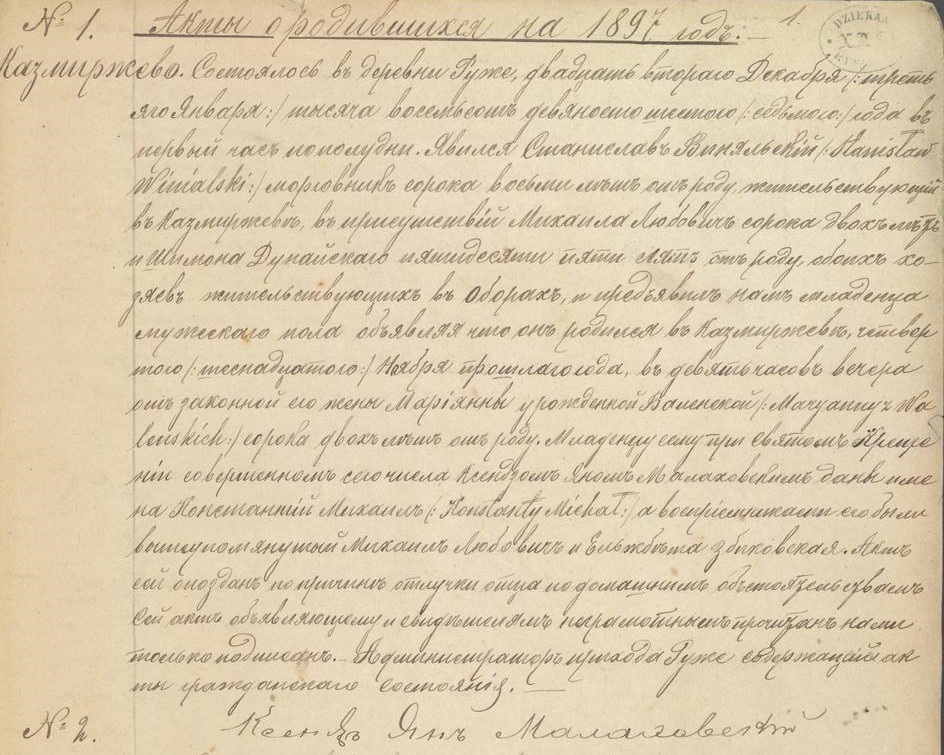 № 1. Акты о родившихся на 1897 годъ. 1.
DZIEKAN
Казмиржево. Состоялось въ деревни Руже, двадцать втораго Декабря /: треть
яго Января :/ тысяча восемьсотъ девяносто шестого /: седьмого :/ года въ
первый часъ пополудни. Явился Станиславъ Виняльскій /: Stanisław
Winialski :/ морговникъ сорока восьми лѣтъ отъ роду, жительствующій
въ Казмиржевѣ, въ присутствіи Михаила Любовичъ сорока двохъ лѣтъ
и Шимона Дунайскаго пятидесяти пяти лятъ отъ роду, обоихъ хо-
зяевъ жительствующихъ въ Оборахъ, и предъявилъ намъ младенца
мужескаго пола объявляя что онъ родился въ Казмиржевѣ, четвер
того /: шеснадцатого :/ Ноября прошлаго года, въ девять часовъ вечера
отъ законной его жены Маріянны урожденной Валенской /: Maryanny z Wa
lenskich :/ сорока двохъ лѣтъ отъ роду. Младенцу сему при Святомъ Креще
ніи совершенномъ сего числа Ксендзомъ Яномъ Малаховскимъ даны име
на Константій Михаилъ /: Konstanty Michał :/ а воспріемниками его были
вышупомянутый Михаилъ Любовичъ и Ельжбѣта Збиковская. Актъ
сей опозданъ по причинѣ отлучки отца по домашнимъ обстоятельствамъ
Сей актъ объявляющему и свидѣтелямъ неграмотнымъ прочитанъ нами
только подписанъ. — Администраторъ прихода Руже содержащій ак
ты гражданскаго состоянія. —
Ксендзъ Янъ Малаховскій
№ 2.